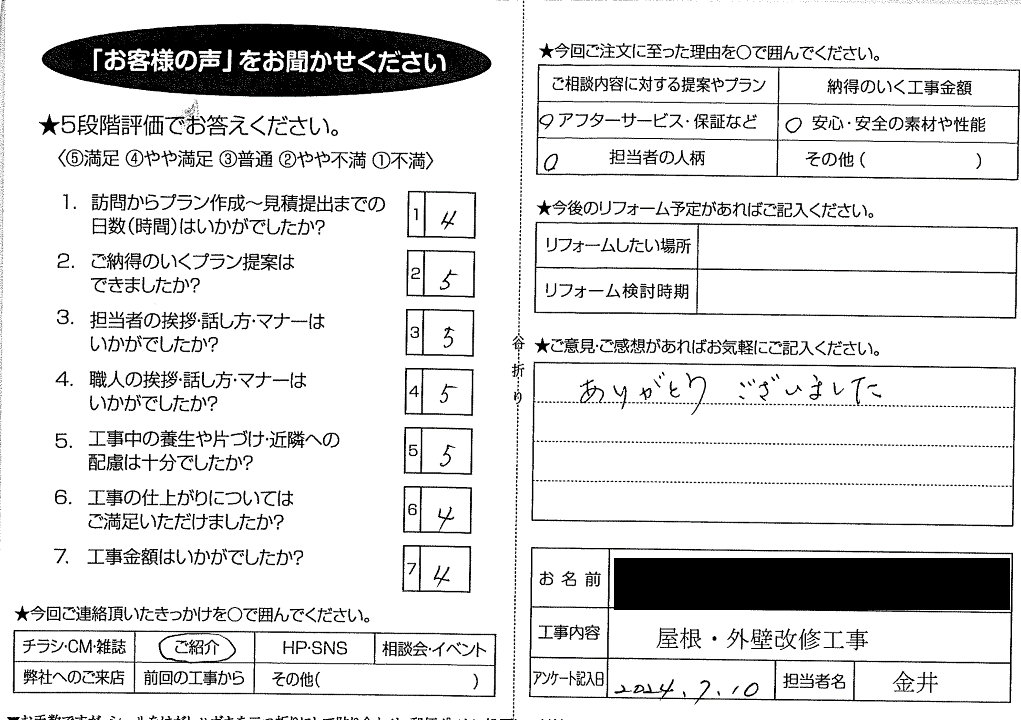 「お客様の声」をお聞かせください
★5段階評価でお答えください。
〈⑤満足 ④やや満足 ③普通 ②やや不満 ①不満〉
1. 訪問からプラン作成～見積提出までの
日数(時間)はいかがでしたか?
1 4
2. ご納得のいくプラン提案は
できましたか?
2 5
3. 担当者の挨拶・話し方・マナーは
いかがでしたか?
3 5
4. 職人の挨拶・話し方・マナーは
いかがでしたか?
4 5
5. 工事中の養生や片づけ・近隣への
配慮は十分でしたか?
5 5
6. 工事の仕上がりについては
ご満足いただけましたか?
6 4
7. 工事金額はいかがでしたか?
7 4
★今回ご連絡頂いたきっかけを○で囲んでください。
チラシ・CM・雑誌 ご紹介 HP・SNS 相談会・イベント
弊社へのご来店 前回の工事から その他( )
谷折り
★今回ご注文に至った理由を○で囲んでください。
ご相談内容に対する提案やプラン 納得のいく工事金額
アフターサービス・保証など 安心・安全の素材や性能
担当者の人柄 その他( )
★今後のリフォーム予定があればご記入ください。
リフォームしたい場所
リフォーム検討時期
★ご意見・ご感想があればお気軽にご記入ください。
ありがとうございました
お名前
工事内容 屋根・外壁改修工事
アンケート記入日 2024.7.10 担当者名 金井